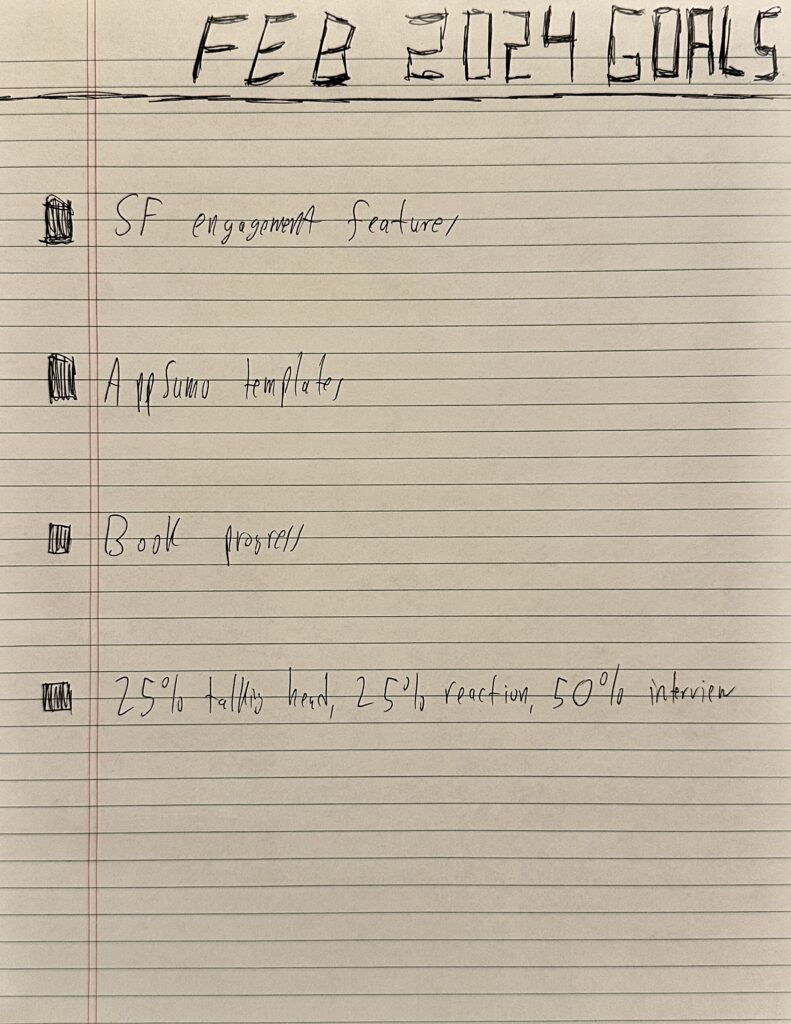 FEB 2024 GOALS
SF engagement features
AppSumo templates
Book progress
25% talking head, 25% reaction, 50% interview